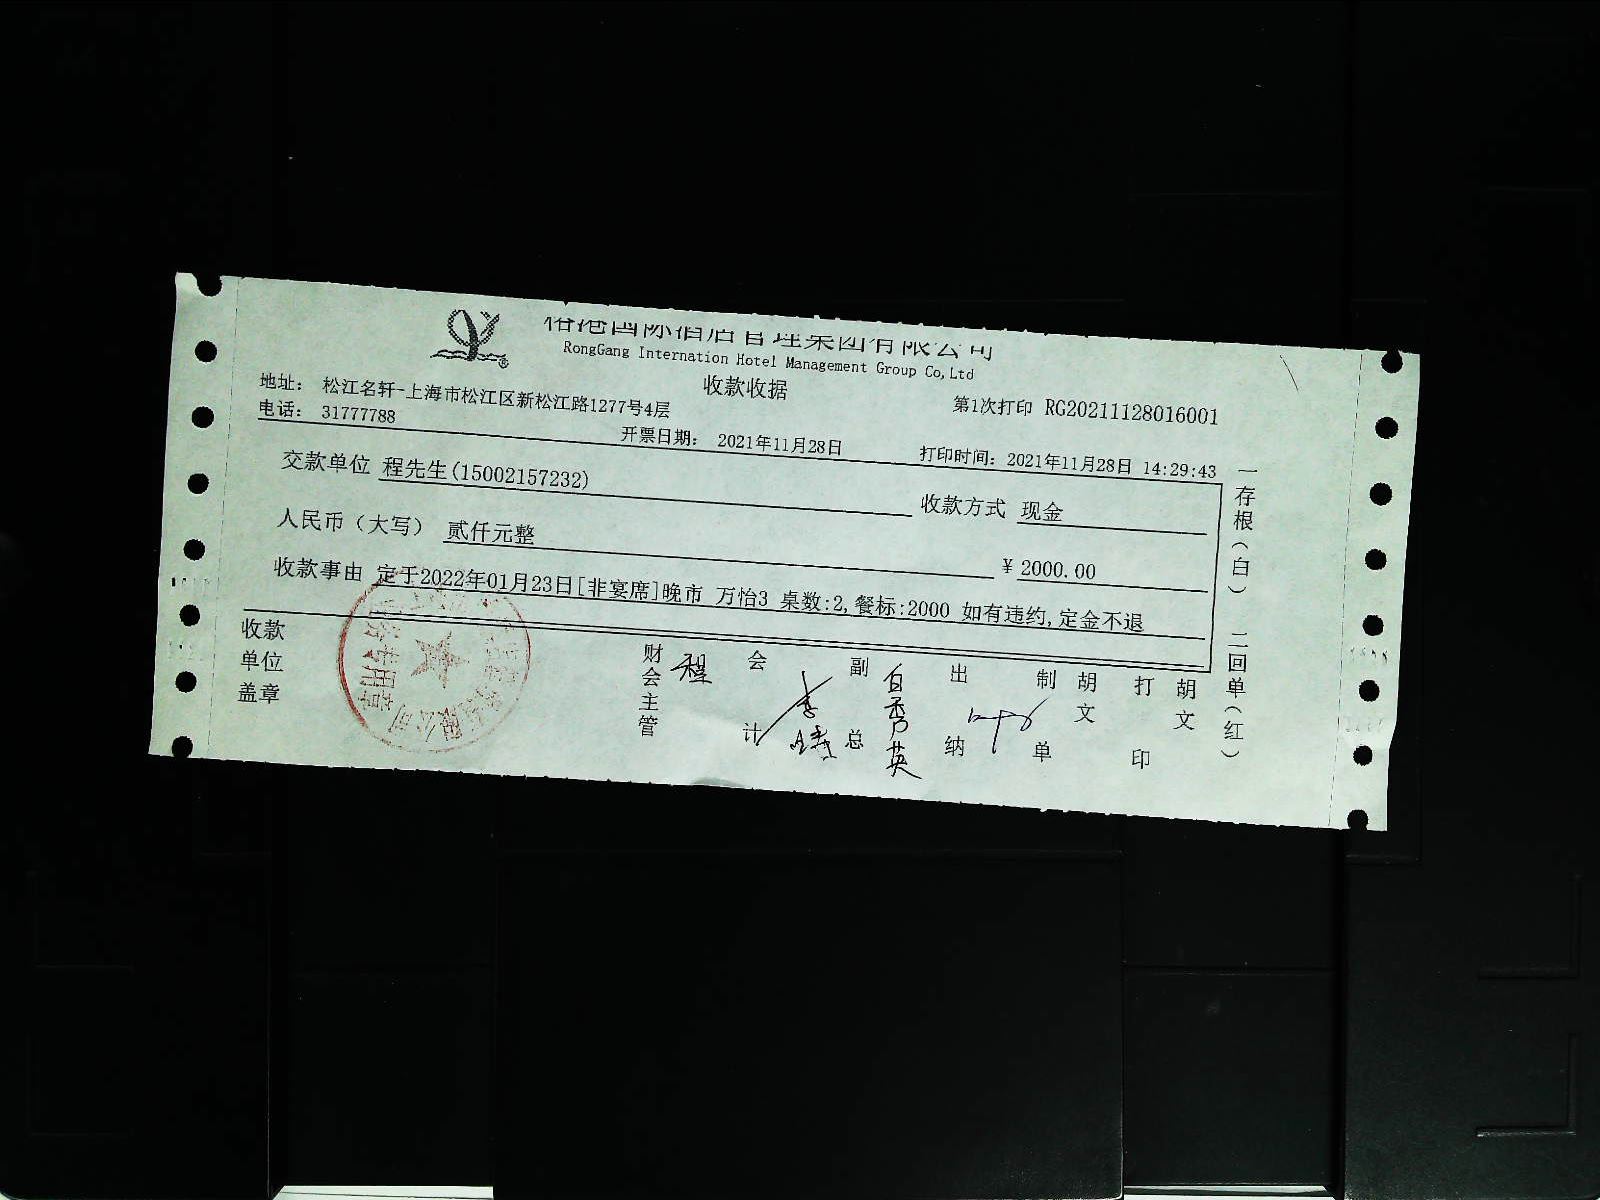 港国际酒店管理集团有限公司
RongGang Internation Hotel Management Group Co,Ltd
收款收据
地址： 松江名轩-上海市松江区新松江路1277号4层
第1次打印 RG20211128016001
电话： 31777788
开票日期： 2021年11月28日
打印时间：2021年11月28日 14:29:43
交款单位 程先生(15002157232)
收款方式 现金
人民币（大写） 贰仟元整
￥2000.00
收款事由 定于2022年01月23日[非宴席]晚市 万怡3 桌数:2,餐标:2000 如有违约,定金不退
收款单位盖章
财会主管 程
会计 李
副总 白秀英
出纳
制单 胡文
打印 胡文
一存根（白） 二回单（红）
专用章
限公司